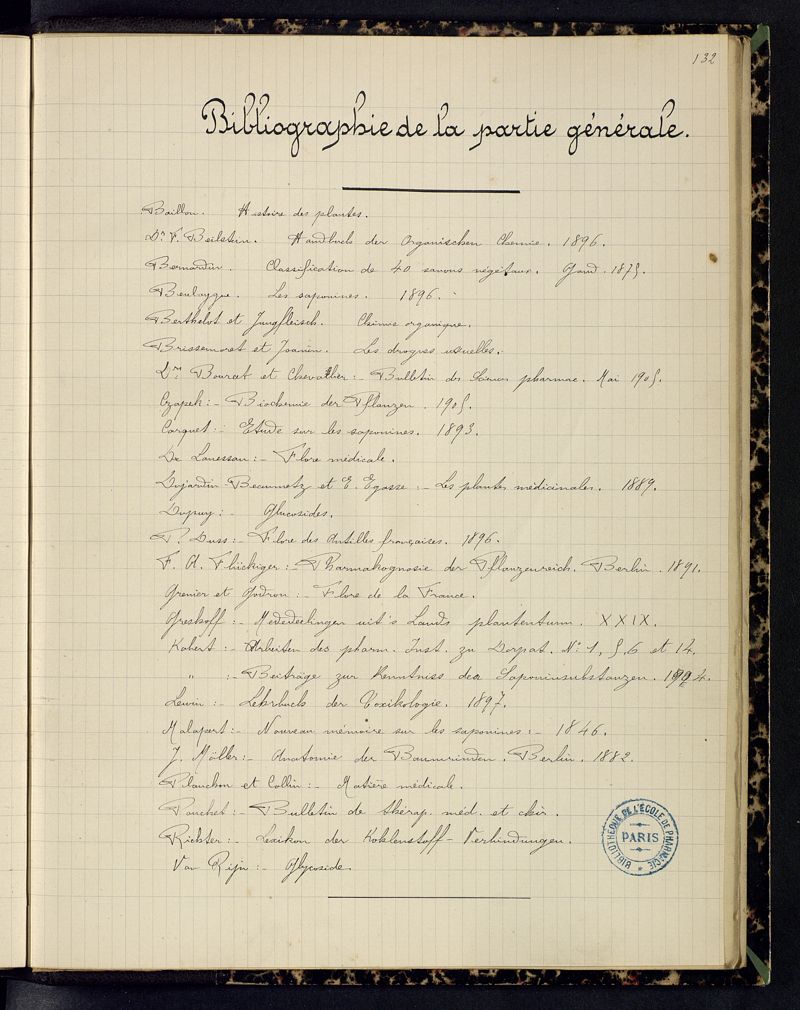 132
Bibliographie de la partie générale.
Baillon. Histoire des plantes.
Dr F. Beilstein. Handbuch der Organischen Chemie. 1896.
Bernardin. Classification de 40 savons végétaux. Gand. 1875.
Boulaygue. Les saponines. 1896.
Berthelot et Jungfleisch. Chimie organique.
Brissemoret et Joanin. Les drogues usuelles.
Drs Bourcet et Chevalier: - Bulletin des Sciences pharmac. Mai 1905.
Czapek: - Biochemie der Pflanzen. 1905.
Carquet: - Etude sur les saponines. 1893.
De Lanessan: - Flore médicale.
Dujardin-Beaumetz et E. Egasse: - Les plantes médicinales. 1889.
Dupuy: - Glucosides.
P. Duss: - Flore des Antilles françaises. 1896.
F. A. Flückiger: - Pharmakognosie der Pflanzenreich. Berlin. 1891.
Grenier et Godron: - Flore de la France.
Greshoff: - Mededeelingen uit's Lands plantentuin. XXIX.
Kobert: - Arbeiten des pharm. Inst. zu Dorpat. No 1, 5, 6 et 14.
" : - Beiträge zur Kenntniss der Saponinsubstanzen. 1904.
Lewin: - Lehrbuch der Toxikologie. 1897.
Malapert: - Nouveau mémoire sur les saponines: - 1846.
J. Möller: - Anatomie der Baumrinden. Berlin. 1882.
Planchon et Collin: - Matière médicale.
Pouchet: - Bulletin de thérap. méd. et chir.
Richter: - Lexikon der Kohlenstoff-Verbindungen.
Van Rijn: - Glycoside.
BIBLIOTHÈQUE DE L'ÉCOLE DE PHARMACIE
PARIS